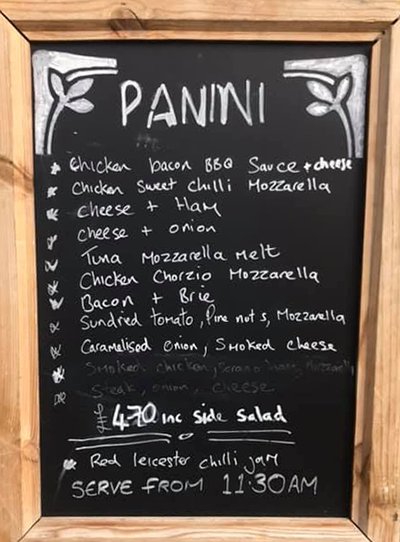 PANINI
Chicken bacon BBQ Sauce + cheese
Chicken Sweet Chilli Mozzarella
cheese + Ham
cheese + onion
Tuna Mozzarella Melt
Chicken Chorzio Mozzarella
Bacon + Brie
Sundried tomato, Pine nuts, Mozzarella
Caramelised Onion, Smoked cheese
Smoked chicken,
Steak, onion, cheese
4.70 inc Side Salad
Red leicester chilli jam
SERVE FROM 11:30AM